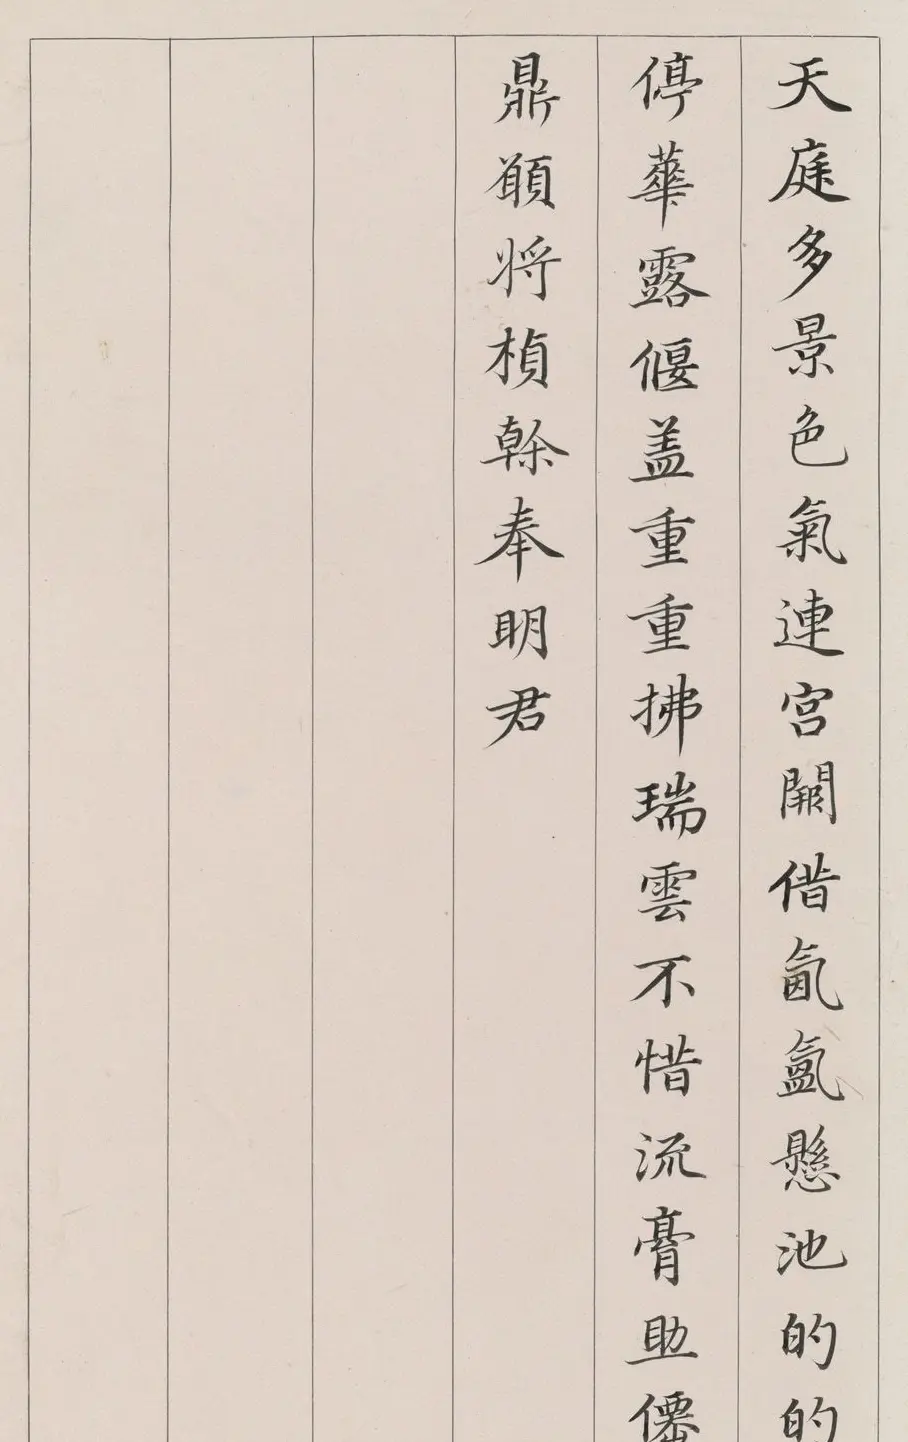 天庭多景色氣連宮闕借氤氳懸池的的
停華露偃盖重重拂瑞雲不惜流膏助僊
鼎願將楨榦奉明君